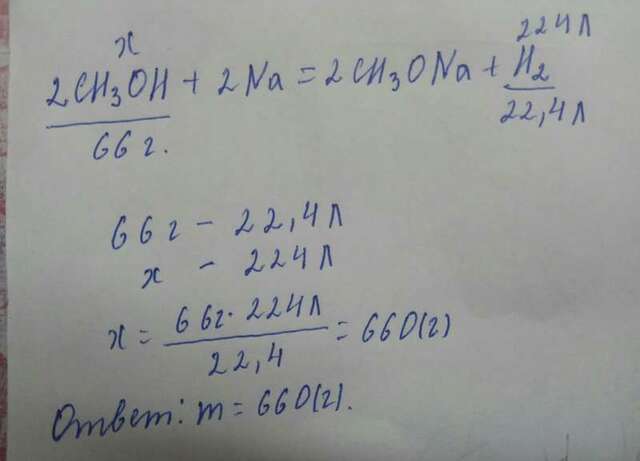 x 224 л
2CH₃OH + 2Na = 2CH₃ONa + H₂
66 г. 22,4 л
66 г – 22,4 л
x – 224 л
x = 66г · 224 л / 22,4 = 660(г)
Ответ: m = 660(г).